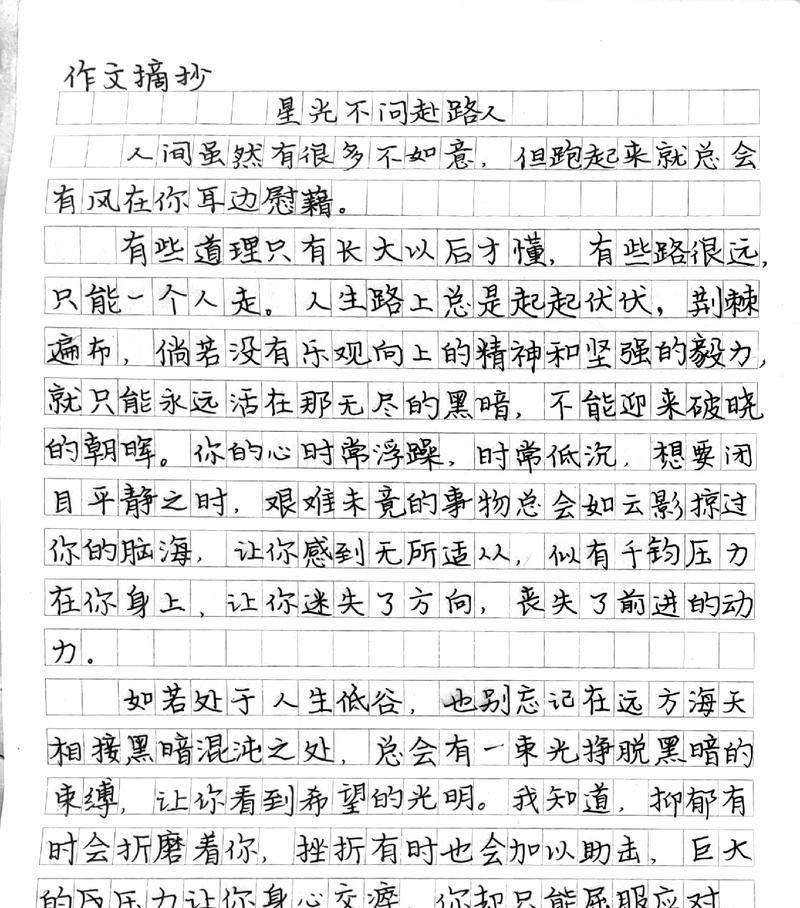 作文摘抄
星光不问赴路人
人间虽然有很多不如意，但跑起来就总会
有风在你耳边慰藉。
有些道理只有长大以后才懂，有些路很远，
只能一个人走。人生路上总是起起伏伏，荆棘
遍布，倘若没有乐观向上的精神和坚强的毅力，
就只能永远活在那无尽的黑暗，不能迎来破晓
的朝晖。你的心时常浮躁，时常低沉，想要闭
目平静之时，艰难未竟的事物总会如云影掠过
你的脑海，让你感到无所适从，似有千钧压力
在你身上，让你迷失了方向，丧失了前进的动
力。
如若处于人生低谷，也别忘记在远方海天
相接黑暗混沌之处，总会有一束光挣脱黑暗的
束缚，让你看到希望的光明。我知道，抑郁有
时会折磨着你，挫折有时也会加以助击，巨大
的反压力让你身心交瘁，你却只能屈服应对